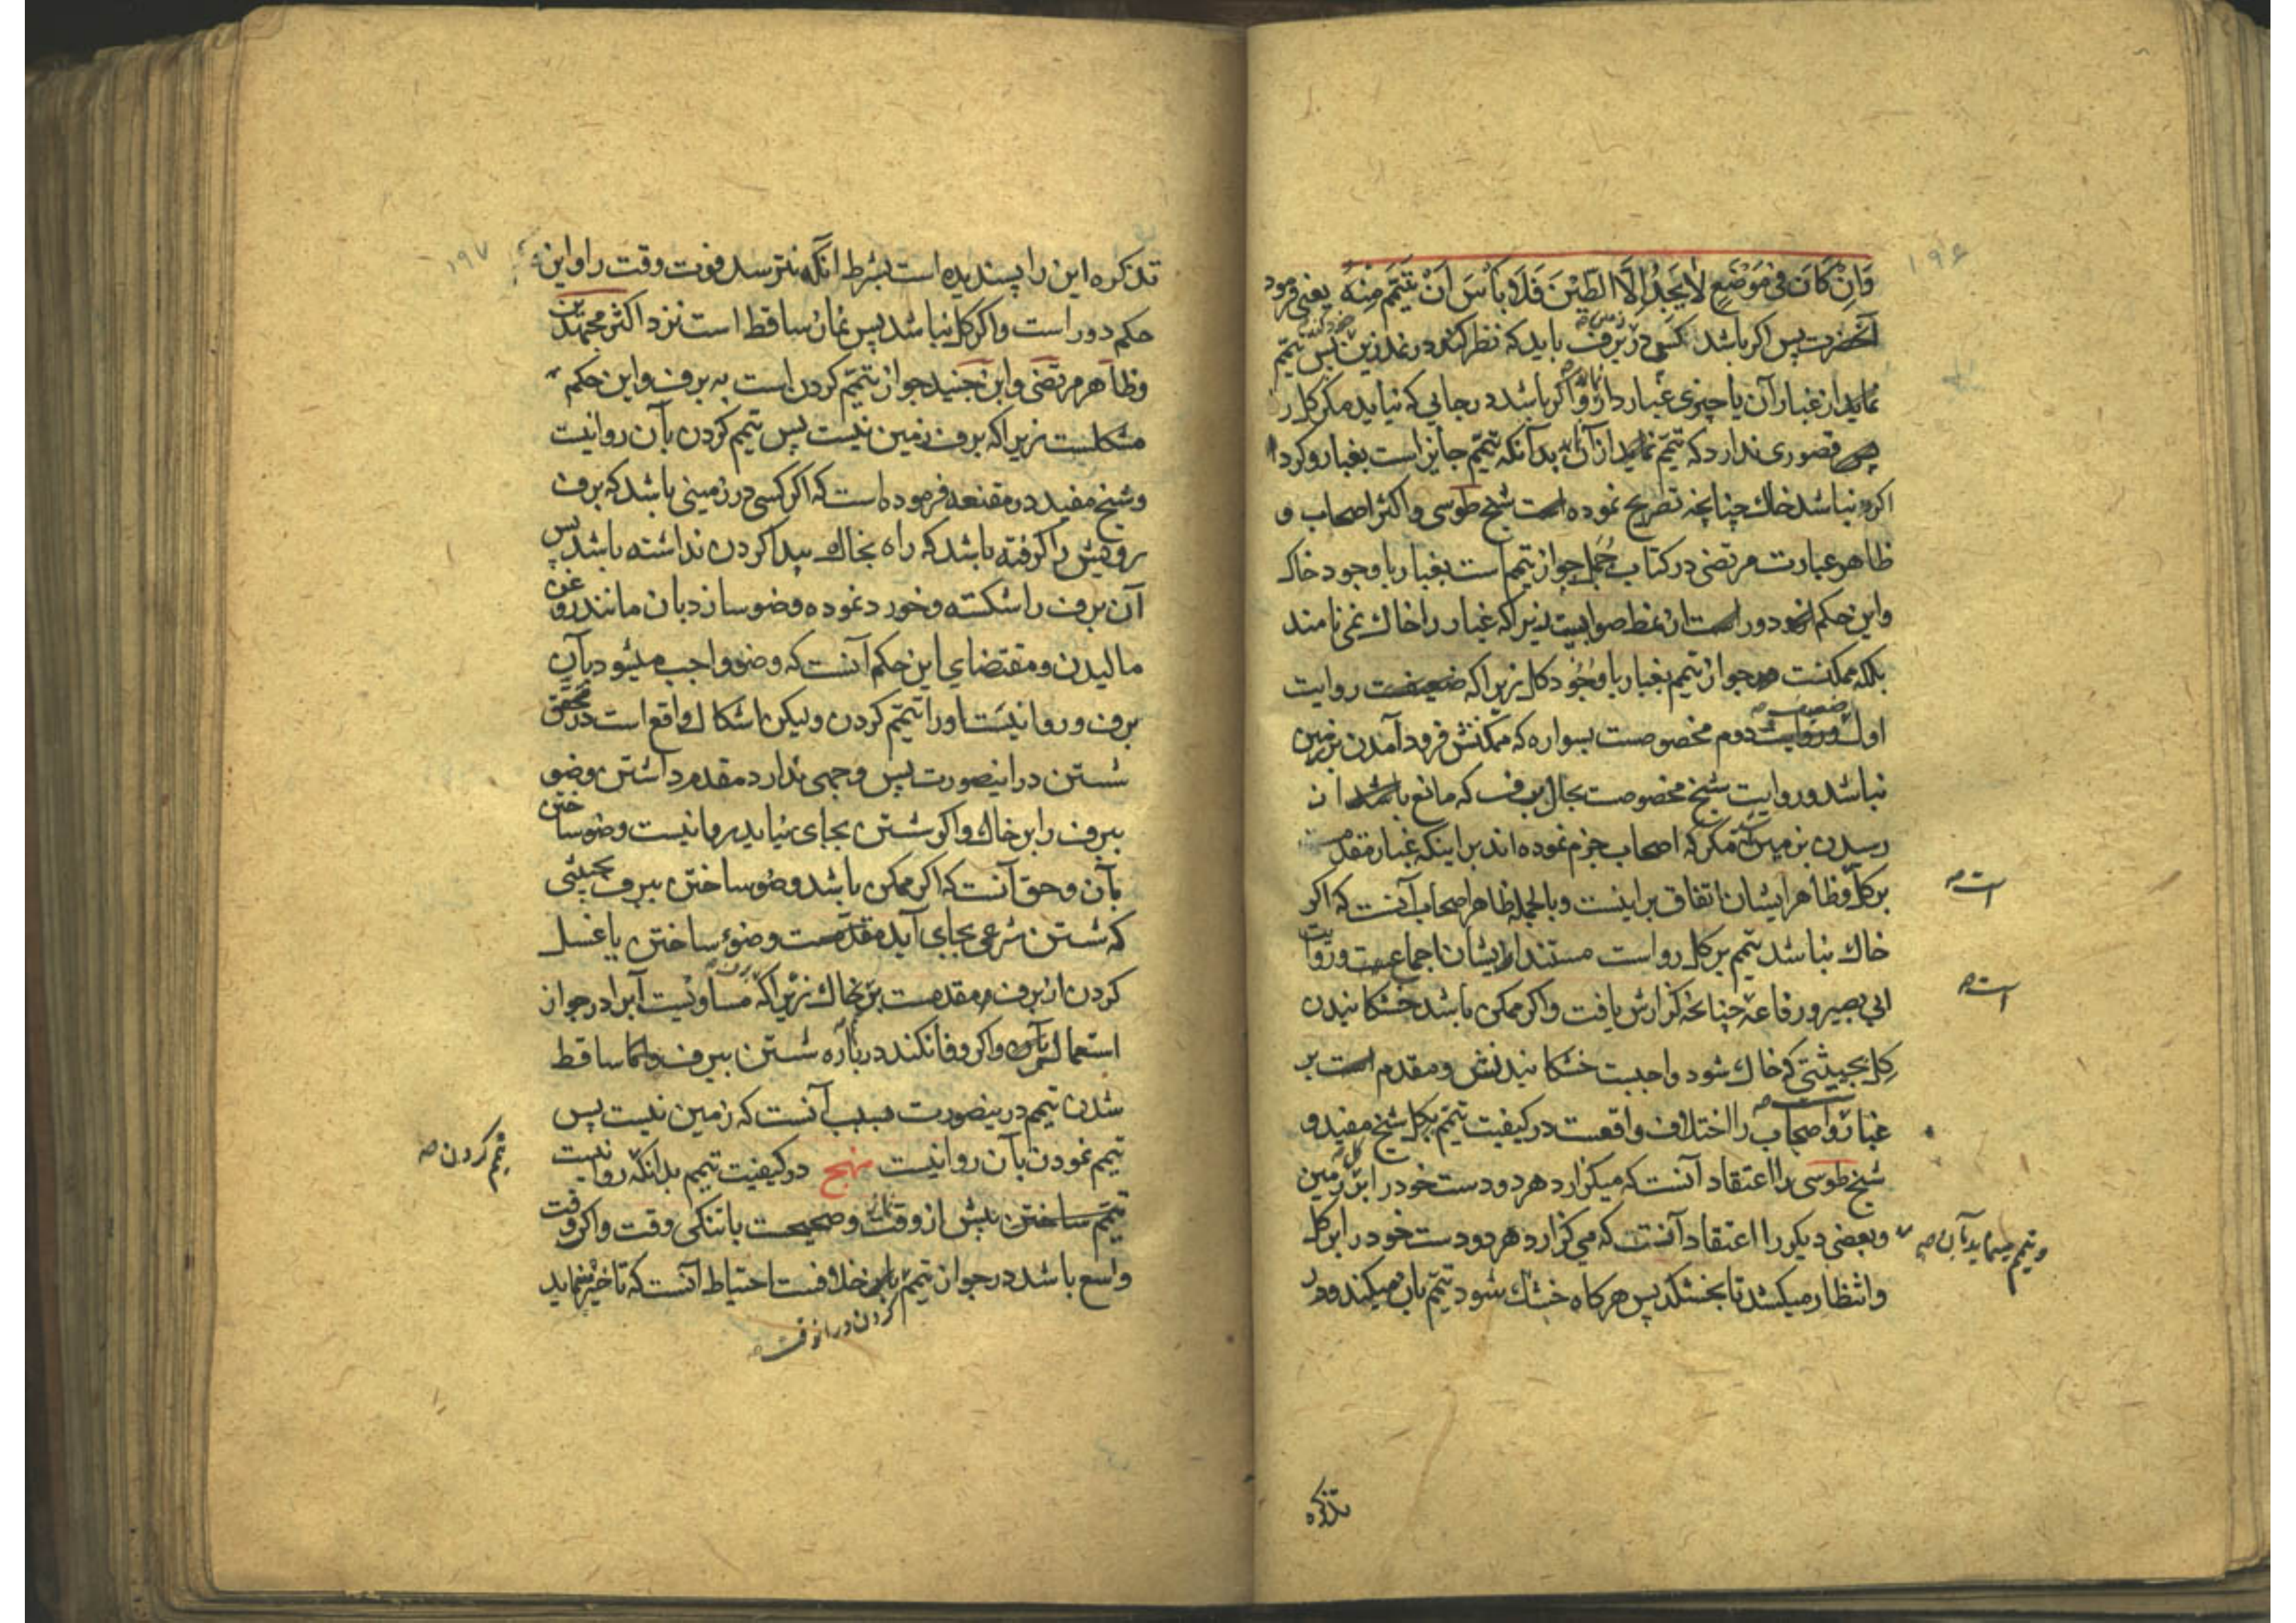 ۱۹۶
وَاِنْ كَانَ فی مَوْضَعٍ لٰا یَجِدُ اِلَّا الطّینَ فَلَا بَأسَ اَنْ یَتَیَمَّمَ مِنْهُ یعنی فرمود
آنحضرت پس اکر باشد کسی در برف باید که نظر کند در نمد زین خود پس تیمّم
نماید از غبار آن یا چیزی غبار دار و اکر باشد در جایی که نیابد مکر کل را
قصوری ندارد که تیمّم نماید از آن بدانکه تیمّم جایز است بغبار وکرد
اکر نباشد خاك چنانچه تصریح نموده است شیخ طوسی و اکثر اصحاب و
ظاهر عبارت مرتضی در کتاب جُمل جواز تیمم است بغبار با وجود خاک
و این حکم دور است از نمط صواب زیرا که غبار را خاك نمی نامند
بلکه ممکنست جواز تیمم بغبار با وُجُود کل زیرا که ضعیفست روایت
اول و روایت دوم مخصوصست بسواره که ممکنش فرود آمدن بر زمین
نباشد و روایت شیخ مخصوصست بحال برف که مانع باشد از
رسیدن بزمین مکر که اصحاب جزم نموده اند بر اینکه غبار مقدم
است صح
بر کل و ظاهر ایشان اتفاق براینست و بالجمله ظاهر اصحاب آنست که اکر
خاك نباشد تیمم بر کل رواست مستند ایشان اجماعست و روایت
است صح
ابی بصیر و رفاعه چنانچه کزارش یافت و اکر ممکن باشد خشکانیدن
کل بحیثیتی که خاك شود واجبست خشکانیدنش و مقدم است بر
غبار و اصحاب را اختلاف واقعست در کیفیت تیمّم بکل شیخ مفید و
شیخ طوسی را اعتقاد آنست که میکزارد هر دو دست خود را بر زمین
و تیمم مینماید بآن صح
و بعضی دیکر را اعتقاد آنست که می کزارد هر دو دست خود را بر کل
و انتظار میکشد تا بخشکد پس هرکاه خشك شود تیمّم بان میکند و در
تذکره
۱۹۷
تذکره این را پسندیده است بشرط آنکه نترسد فوت وقت را و این
حکم دور است و اکر کل نباشد پس نماز ساقط است نزد اکثر مجتهدین
و ظاهر مرتضی و ابن جنید جواز تیمّم کردن است به برف و این حکم
مشکلست زیرا که برف زمین نیست پس تیمّم کردن بآن روا نیست
و شیخ مفید در مقنعه فرموده است که اکر کسی در زمینی باشد که برف
رویش را کرفته باشد که راه بخاك پیدا کردن نداشته باشد پس
آن برف را شکسته و خورد نموده وضو سازد بان مانند روغن
مالیدن و مقتضای این حکم آنست که وضو واجب میشود بآن
برف و روا نیست او را تیمّم کردن و لیکن اشکال واقع است در تحقق
شستن در اینصورت پس وجهی ندارد مقدم داشتن وضوی
ببرف را بر خاك و اکر شستن بجای نیاید روا نیست وضو ساختن
بآن و حق آنست که اکر ممکن باشد وضو ساختن ببرف بحیثیتی
که شستن شرعی بجای آید مقدمست وضوء ساختن یا غسل
کردن از برف مقدمست بر خاك زیرا که مساویست آبرا در جواز
استعمال و اکر وفا نکند درباره شستن ببرف و اما ساقط
شدن تیمم در ینصورت بسبب آنست که زمین نیست پس
تیمم نمودن بآن روا نیست نهج در کیفیت تیمم بدانکه روا نیست
تیمم کردن صح
تیمّم ساختن پیش از وقت نماز و صحیحست با تنکی وقت و اکر وقت
واسع باشد در جواز تیمّم خلافست احتیاط آنست که تاخیر نماید
کردن در آنوقت صح